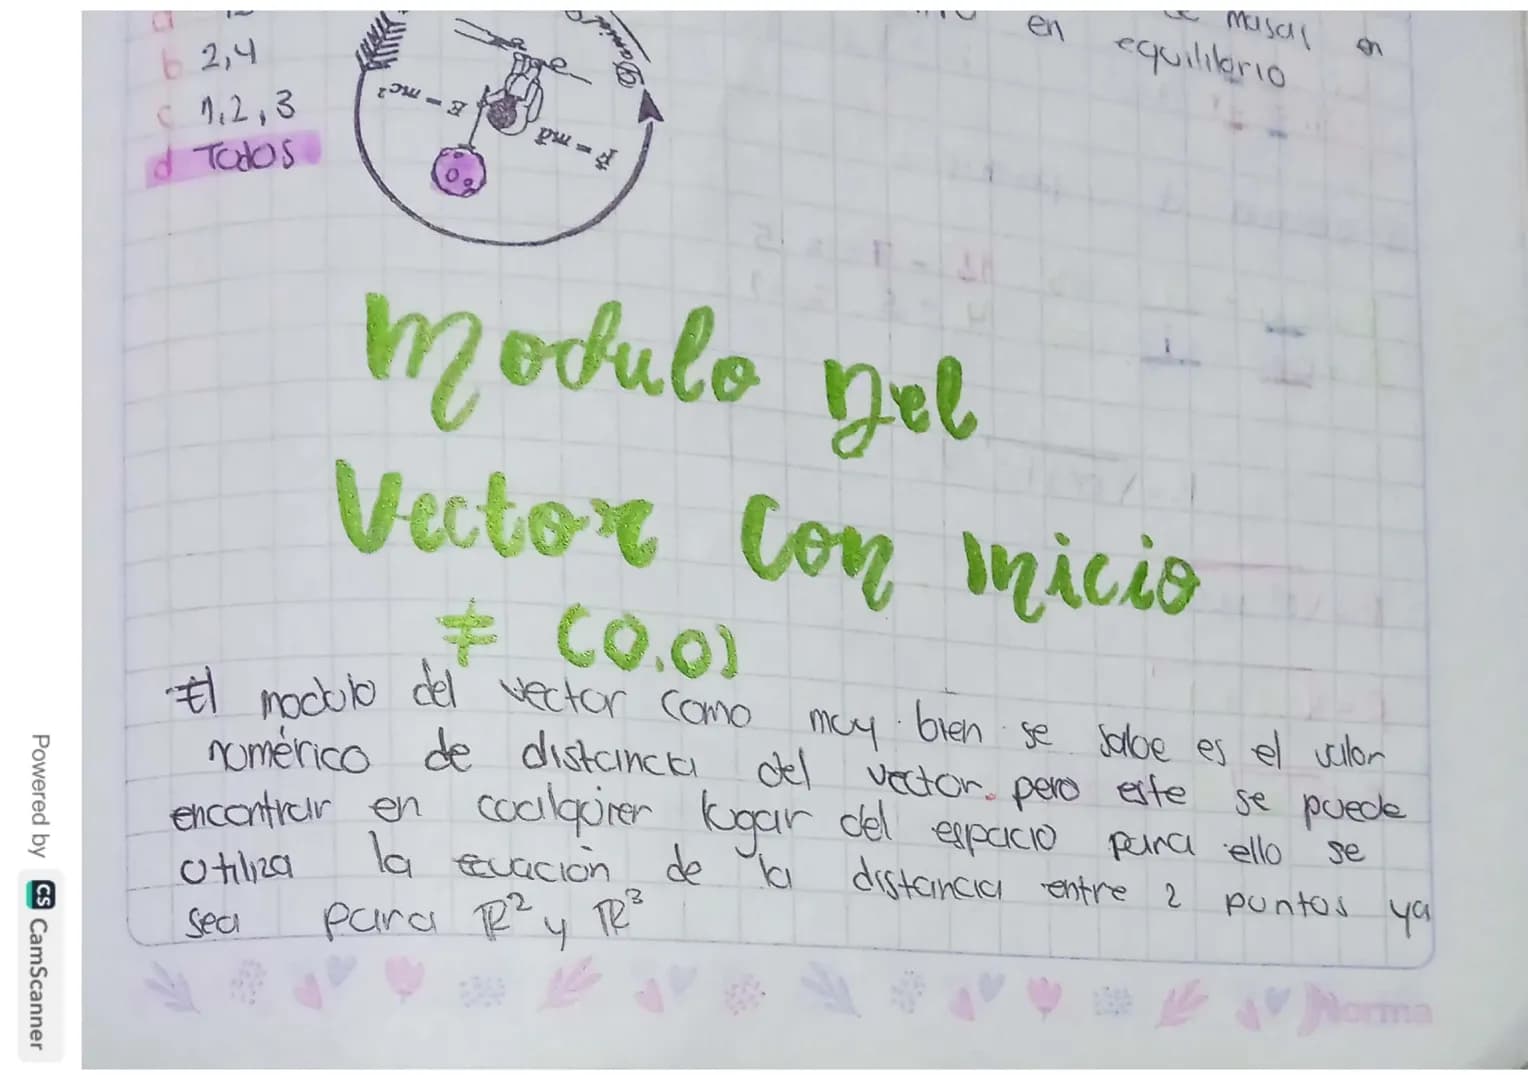 b 2,4
c 1,2,3
d Todos
E = mc²
F = ma
masas en
en equilibrio
Modulo Del
Vector Con Inicio
≠ (0,0)
El modulo del vector como muy bien se sabe es el valor
númerico de distancia del vector. pero este se puede
encontrar en cualquier lugar del espacio para ello se
utiliza la ecuación de la distancia entre 2 puntos ya
sea para R² y R³
Norma
Powered by CS CamScanner